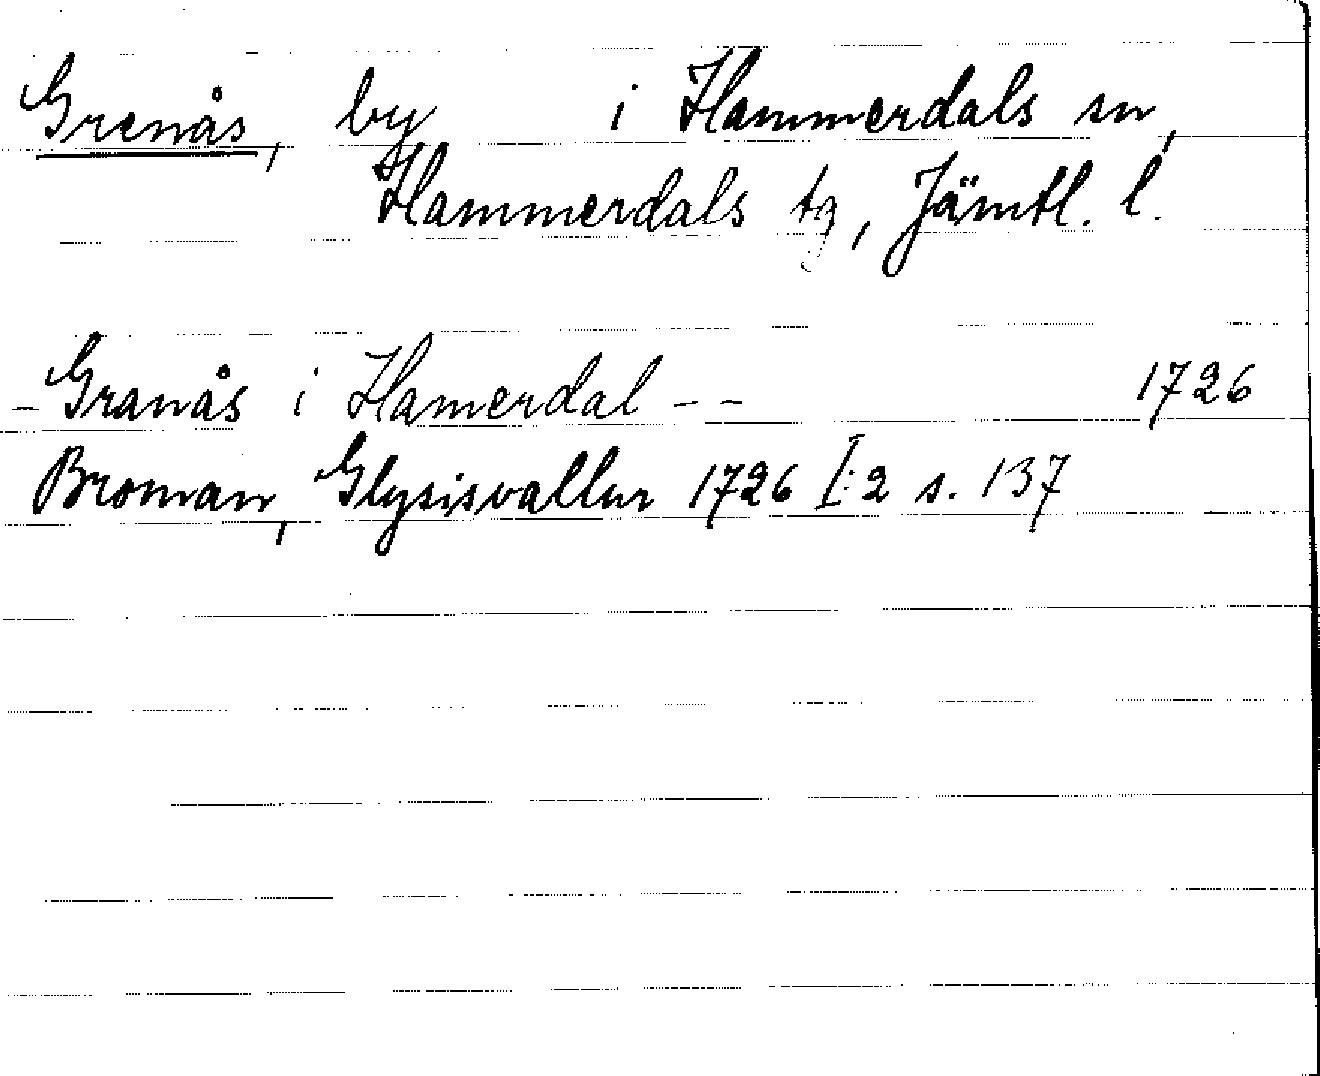 Grenås, by i Hammerdals sn,
Hammerdals tg, Jämtl. l.
- Granås i Hamerdal - - 1726
Broman, Glysisvallur 1726 I:2 s. 137